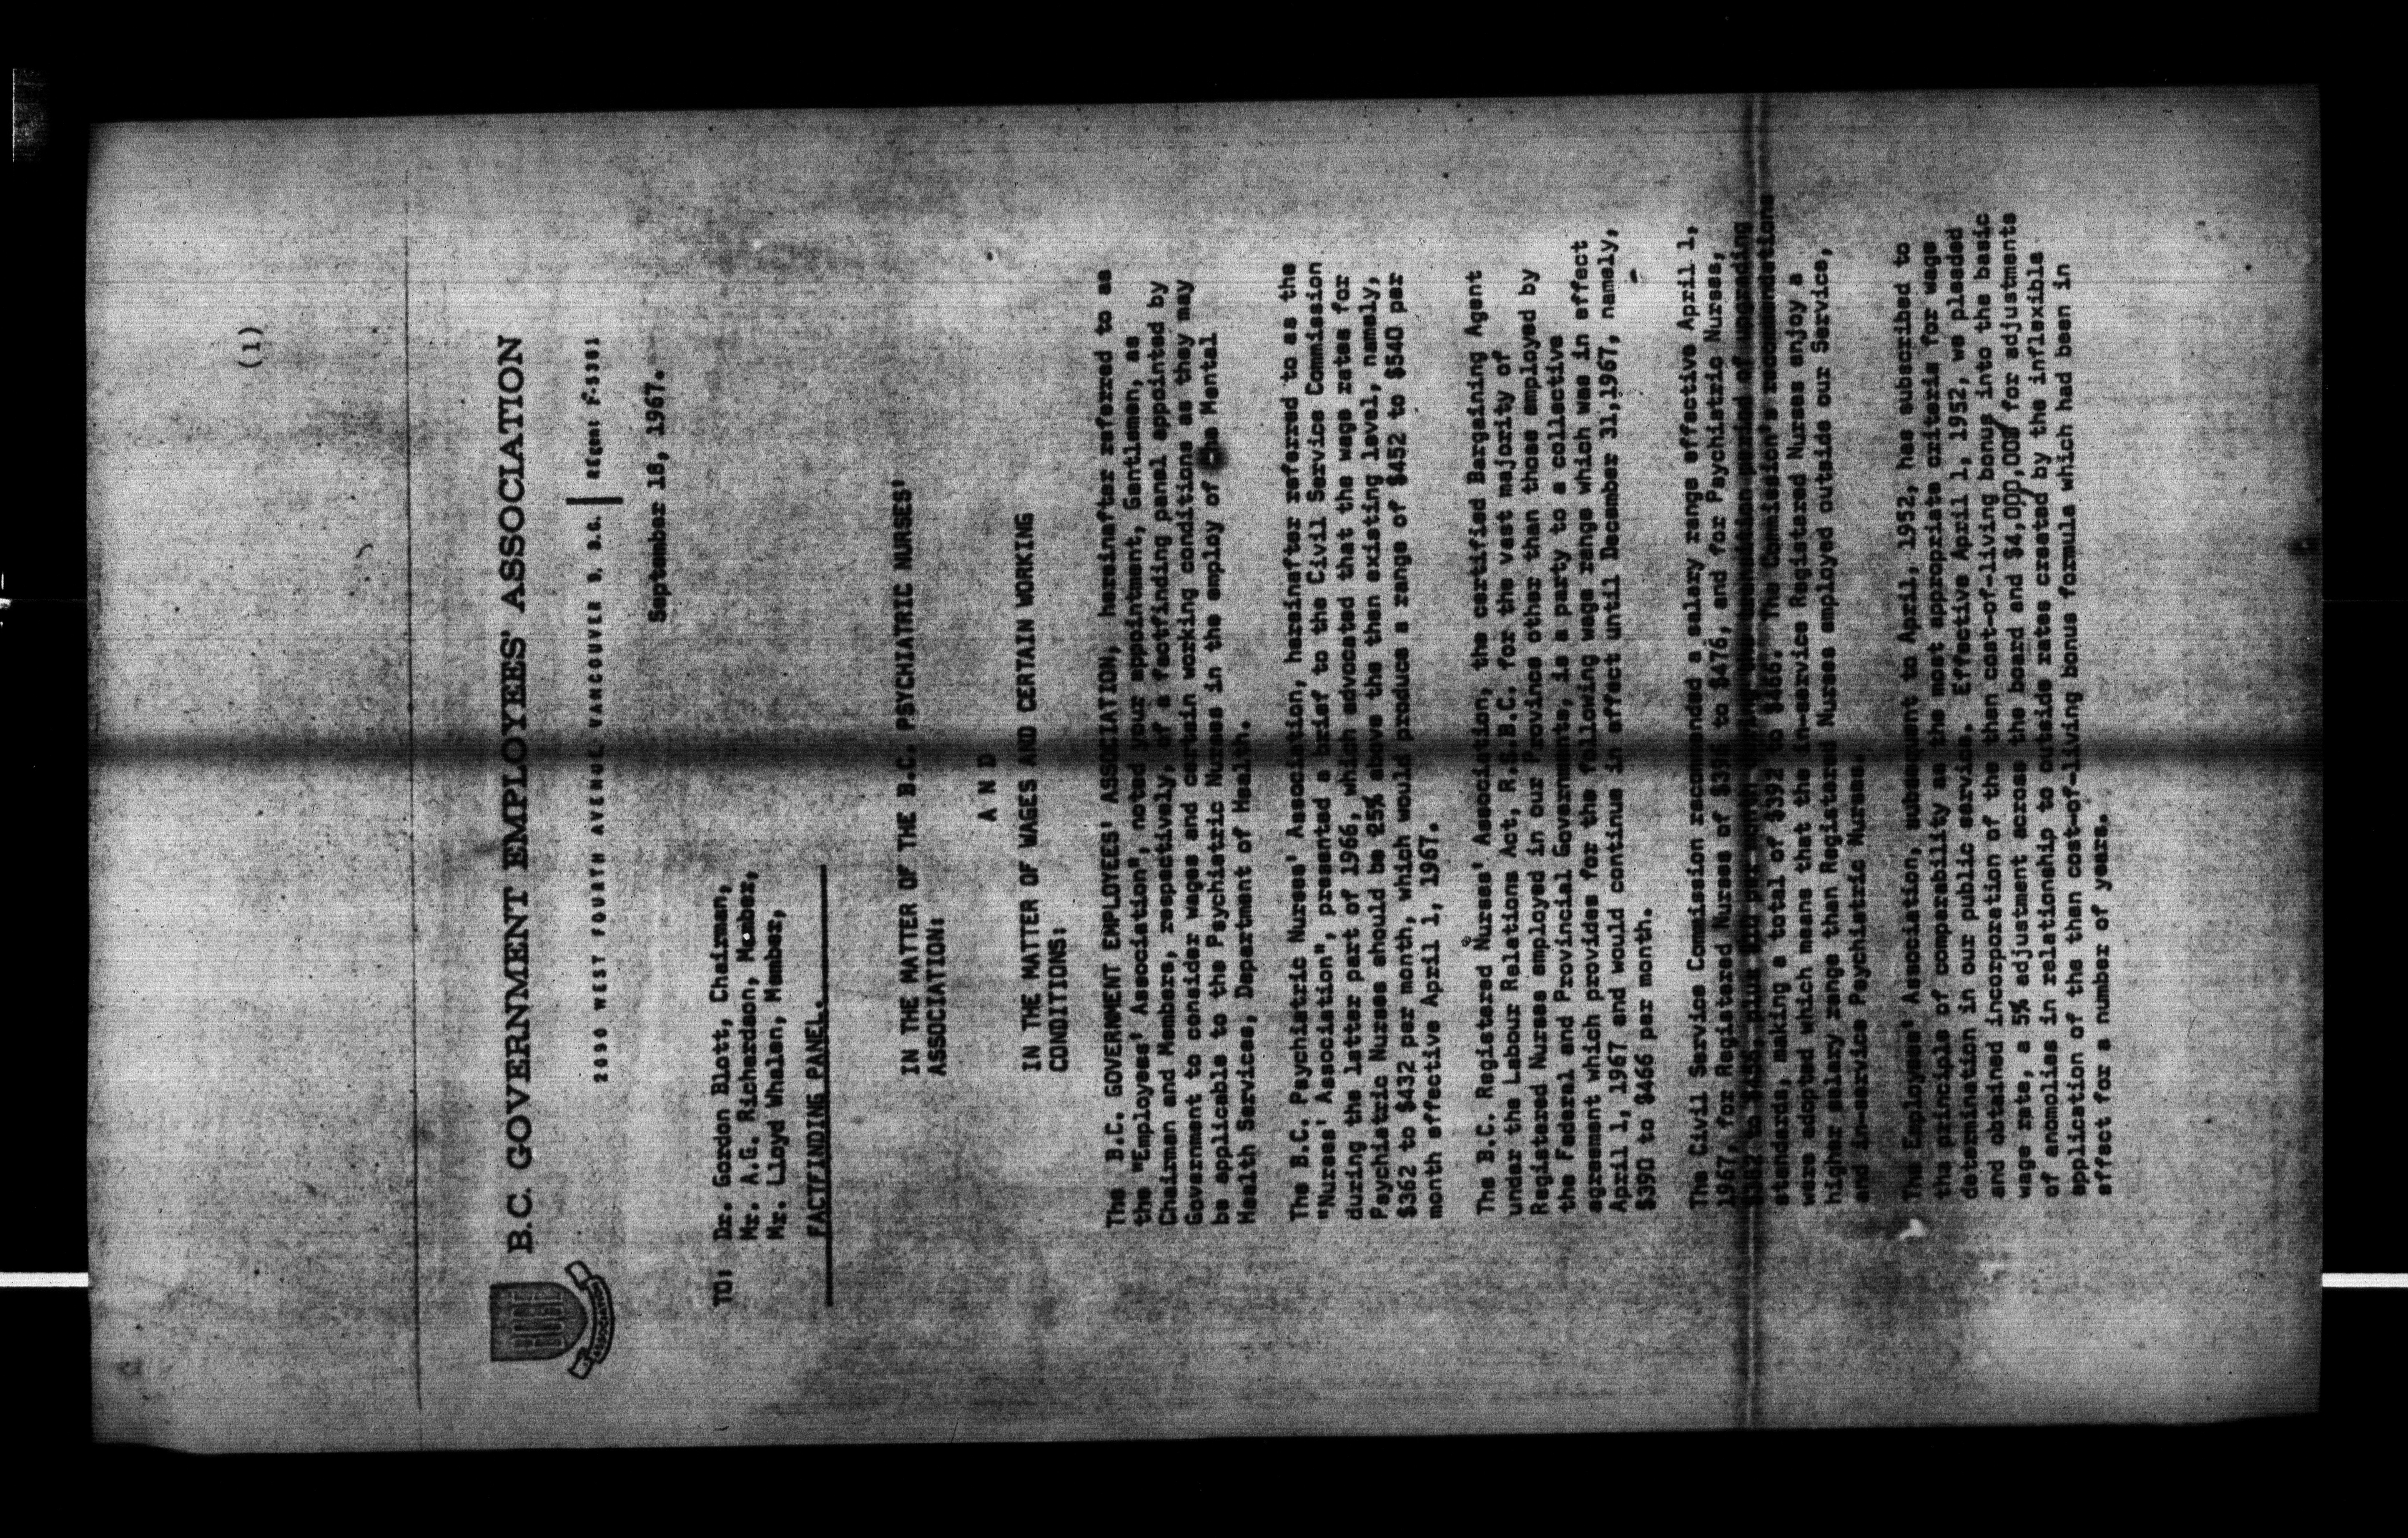 (1)
B.C. GOVERNMENT EMPLOYEES' ASSOCIATION
ASSOCIATION
2090 WEST FOURTH AVENUE, VANCOUVER 9, B.C. REgent
September 18, 1967.
TO: Dr. Gordon Blott, Chairman,
Mr. A.G. Richardson, Member,
Mr. Lloyd Whalen, Member,
FACTFINDING PANEL.
IN THE MATTER OF THE B.C. PSYCHIATRIC NURSES'
ASSOCIATION:
A N D
IN THE MATTER OF WAGES AND CERTAIN WORKING
CONDITIONS:
The B.C. GOVERNMENT EMPLOYEES' ASSOCIATION, hereinafter referred to as
the "Employees' Association", noted your appointment, Gentlemen, as
Chairman and Members, respectively, of a factfinding panel appointed by
Government to consider wages and certain working conditions as they may
be applicable to the Psychiatric Nurses in the employ of the Mental
Health Services, Department of Health.
The B.C. Psychiatric Nurses' Association, hereinafter referred to as the
"Nurses' Association", presented a brief to the Civil Service Commission
during the latter part of 1966, which advocated that the wage rates for
Psychiatric Nurses should be 25% above the then existing level, namely,
$362 to $432 per month, which would produce a range of $452 to $540 per
month effective April 1, 1967.
The B.C. Registered Nurses' Association, the certified Bargaining Agent
under the Labour Relations Act, R.S.B.C. for the vast majority of
Registered Nurses employed in our Province other than those employed by
the Federal and Provincial Governments, is a party to a collective
agreement which provides for the following wage range which was in effect
April 1, 1967 and would continue in effect until December 31,1967, namely,
$390 to $466 per month.
The Civil Service Commission recommended a salary range effective April 1,
1967, for Registered Nurses of $396 to $476, and for Psychiatric Nurses,
$382 to $456, plus $10 per month during the transition period of upgrading
standards, making a total of $392 to $466. The Commission's recommendations
were adopted which means that the in-service Registered Nurses enjoy a
higher salary range than Registered Nurses employed outside our Service,
and in-service Psychiatric Nurses.
The Employees' Association, subsequent to April, 1952, has subscribed to
the principle of comparability as the most appropriate criteria for wage
determination in our public service. Effective April 1, 1952, we pleaded
and obtained incorporation of the then cost-of-living bonus into the basic
wage rate, a 5% adjustment across the board and $4,000,000 for adjustments
of anomolies in relationship to outside rates created by the inflexible
application of the then cost-of-living bonus formula which had been in
effect for a number of years.